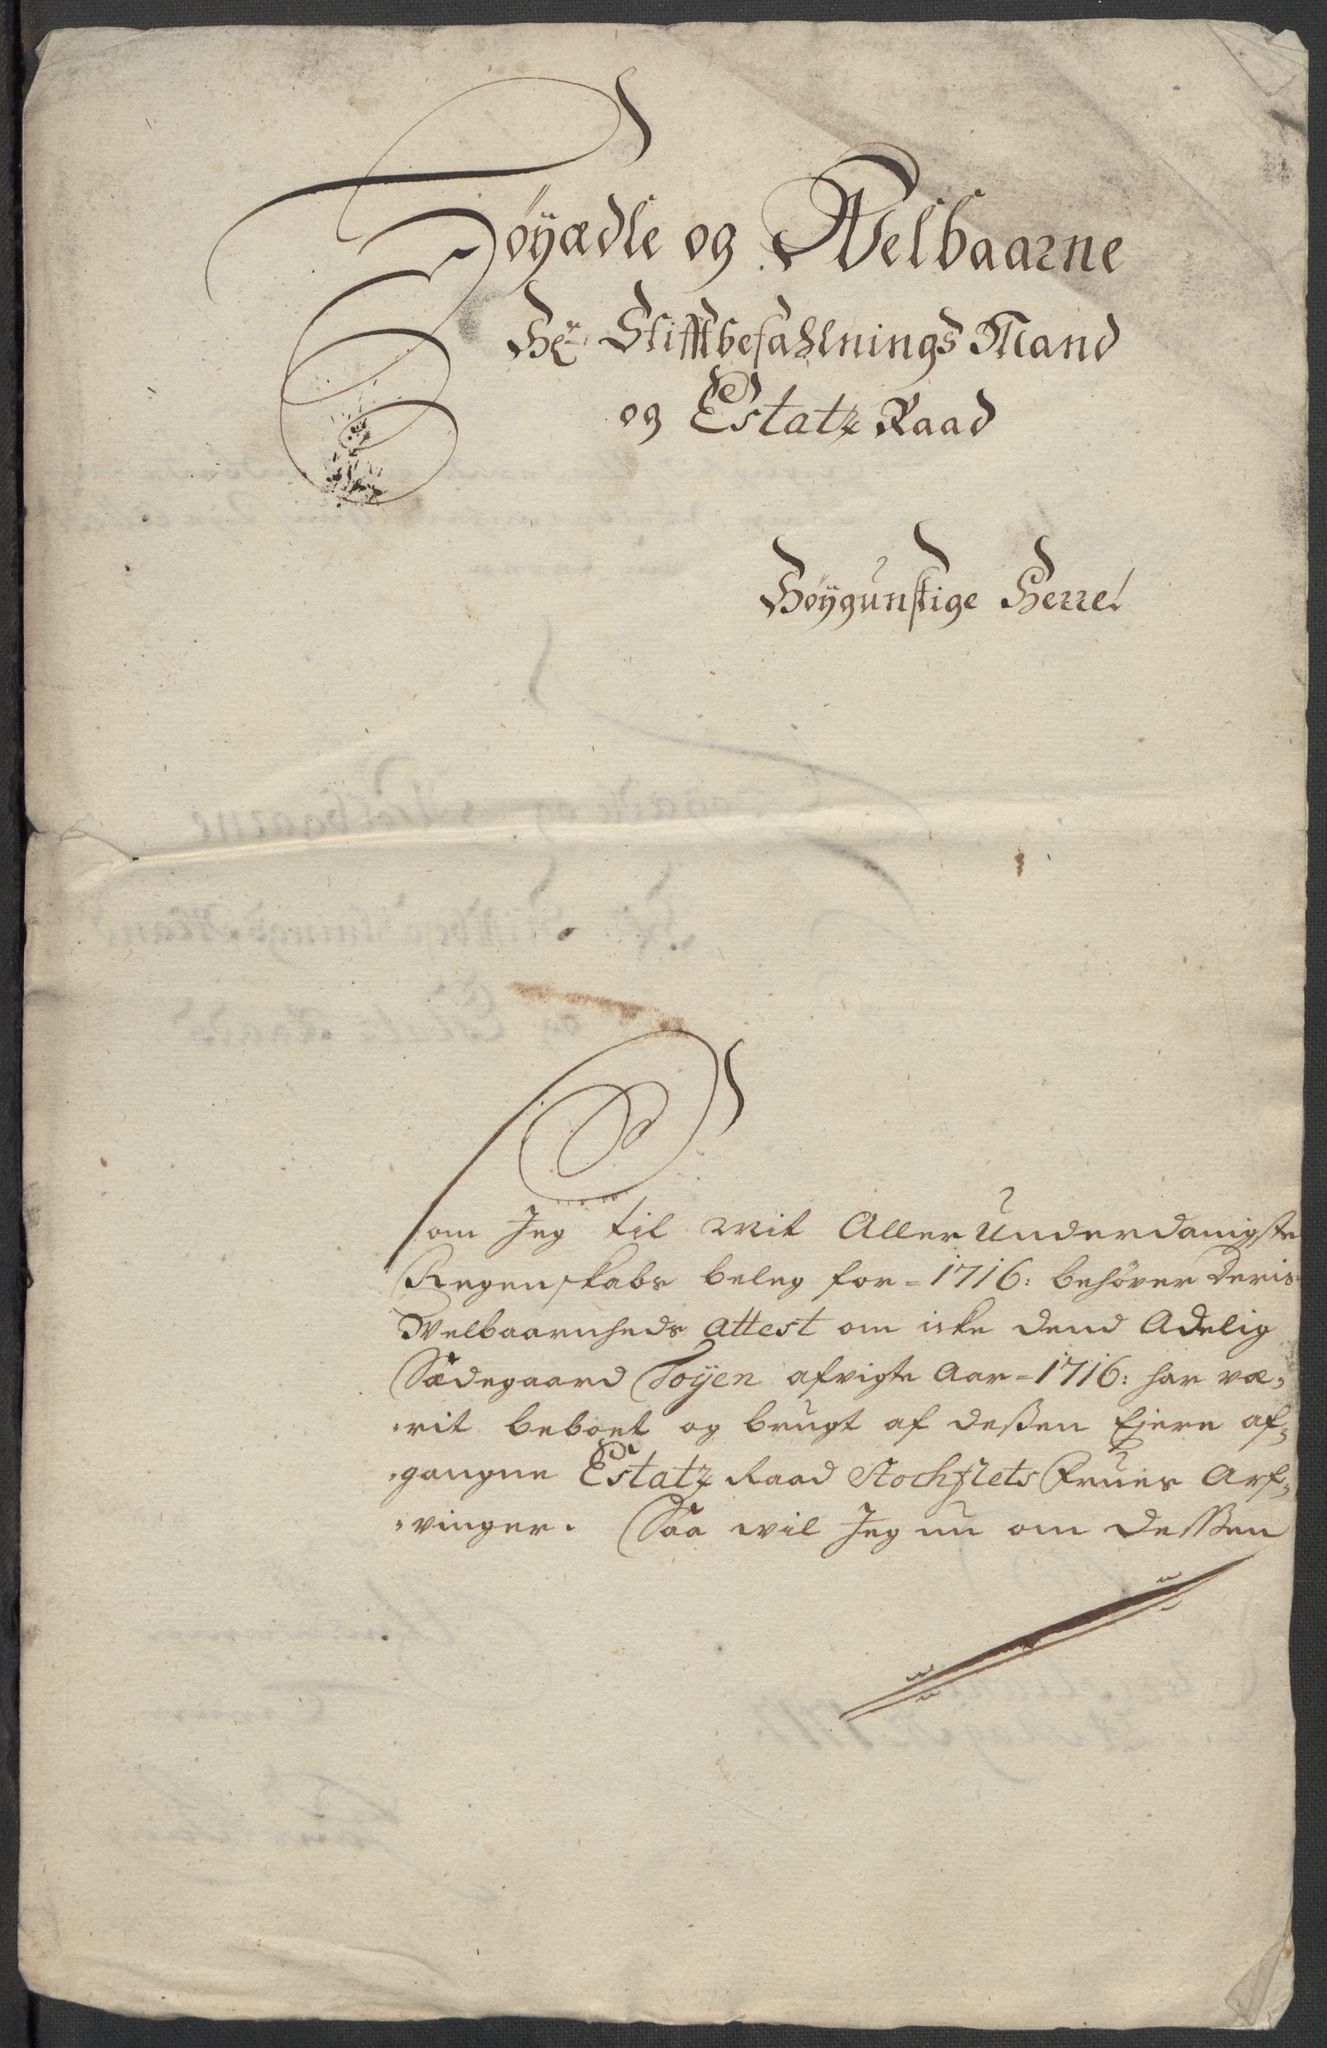 Høyædle og Welbaarne
Hr. Stifftbefahlnings Mand
og Estatz Raad
Høygunstige Herre!
Som Jeg til Mit Aller Underdanigste
Regenskabs beleg for 1716: behøver Deris
Welbaarnheds Attest om icke dend Adelig
Sædegaard Toÿen afvigte Aar 1716: har væ,
,rit beboet og brugt af deßen Ejere af,
,gangne Estatz Raad Stochflets Frues Arf,
,vinger. Saa wil Jeg nu om dessen